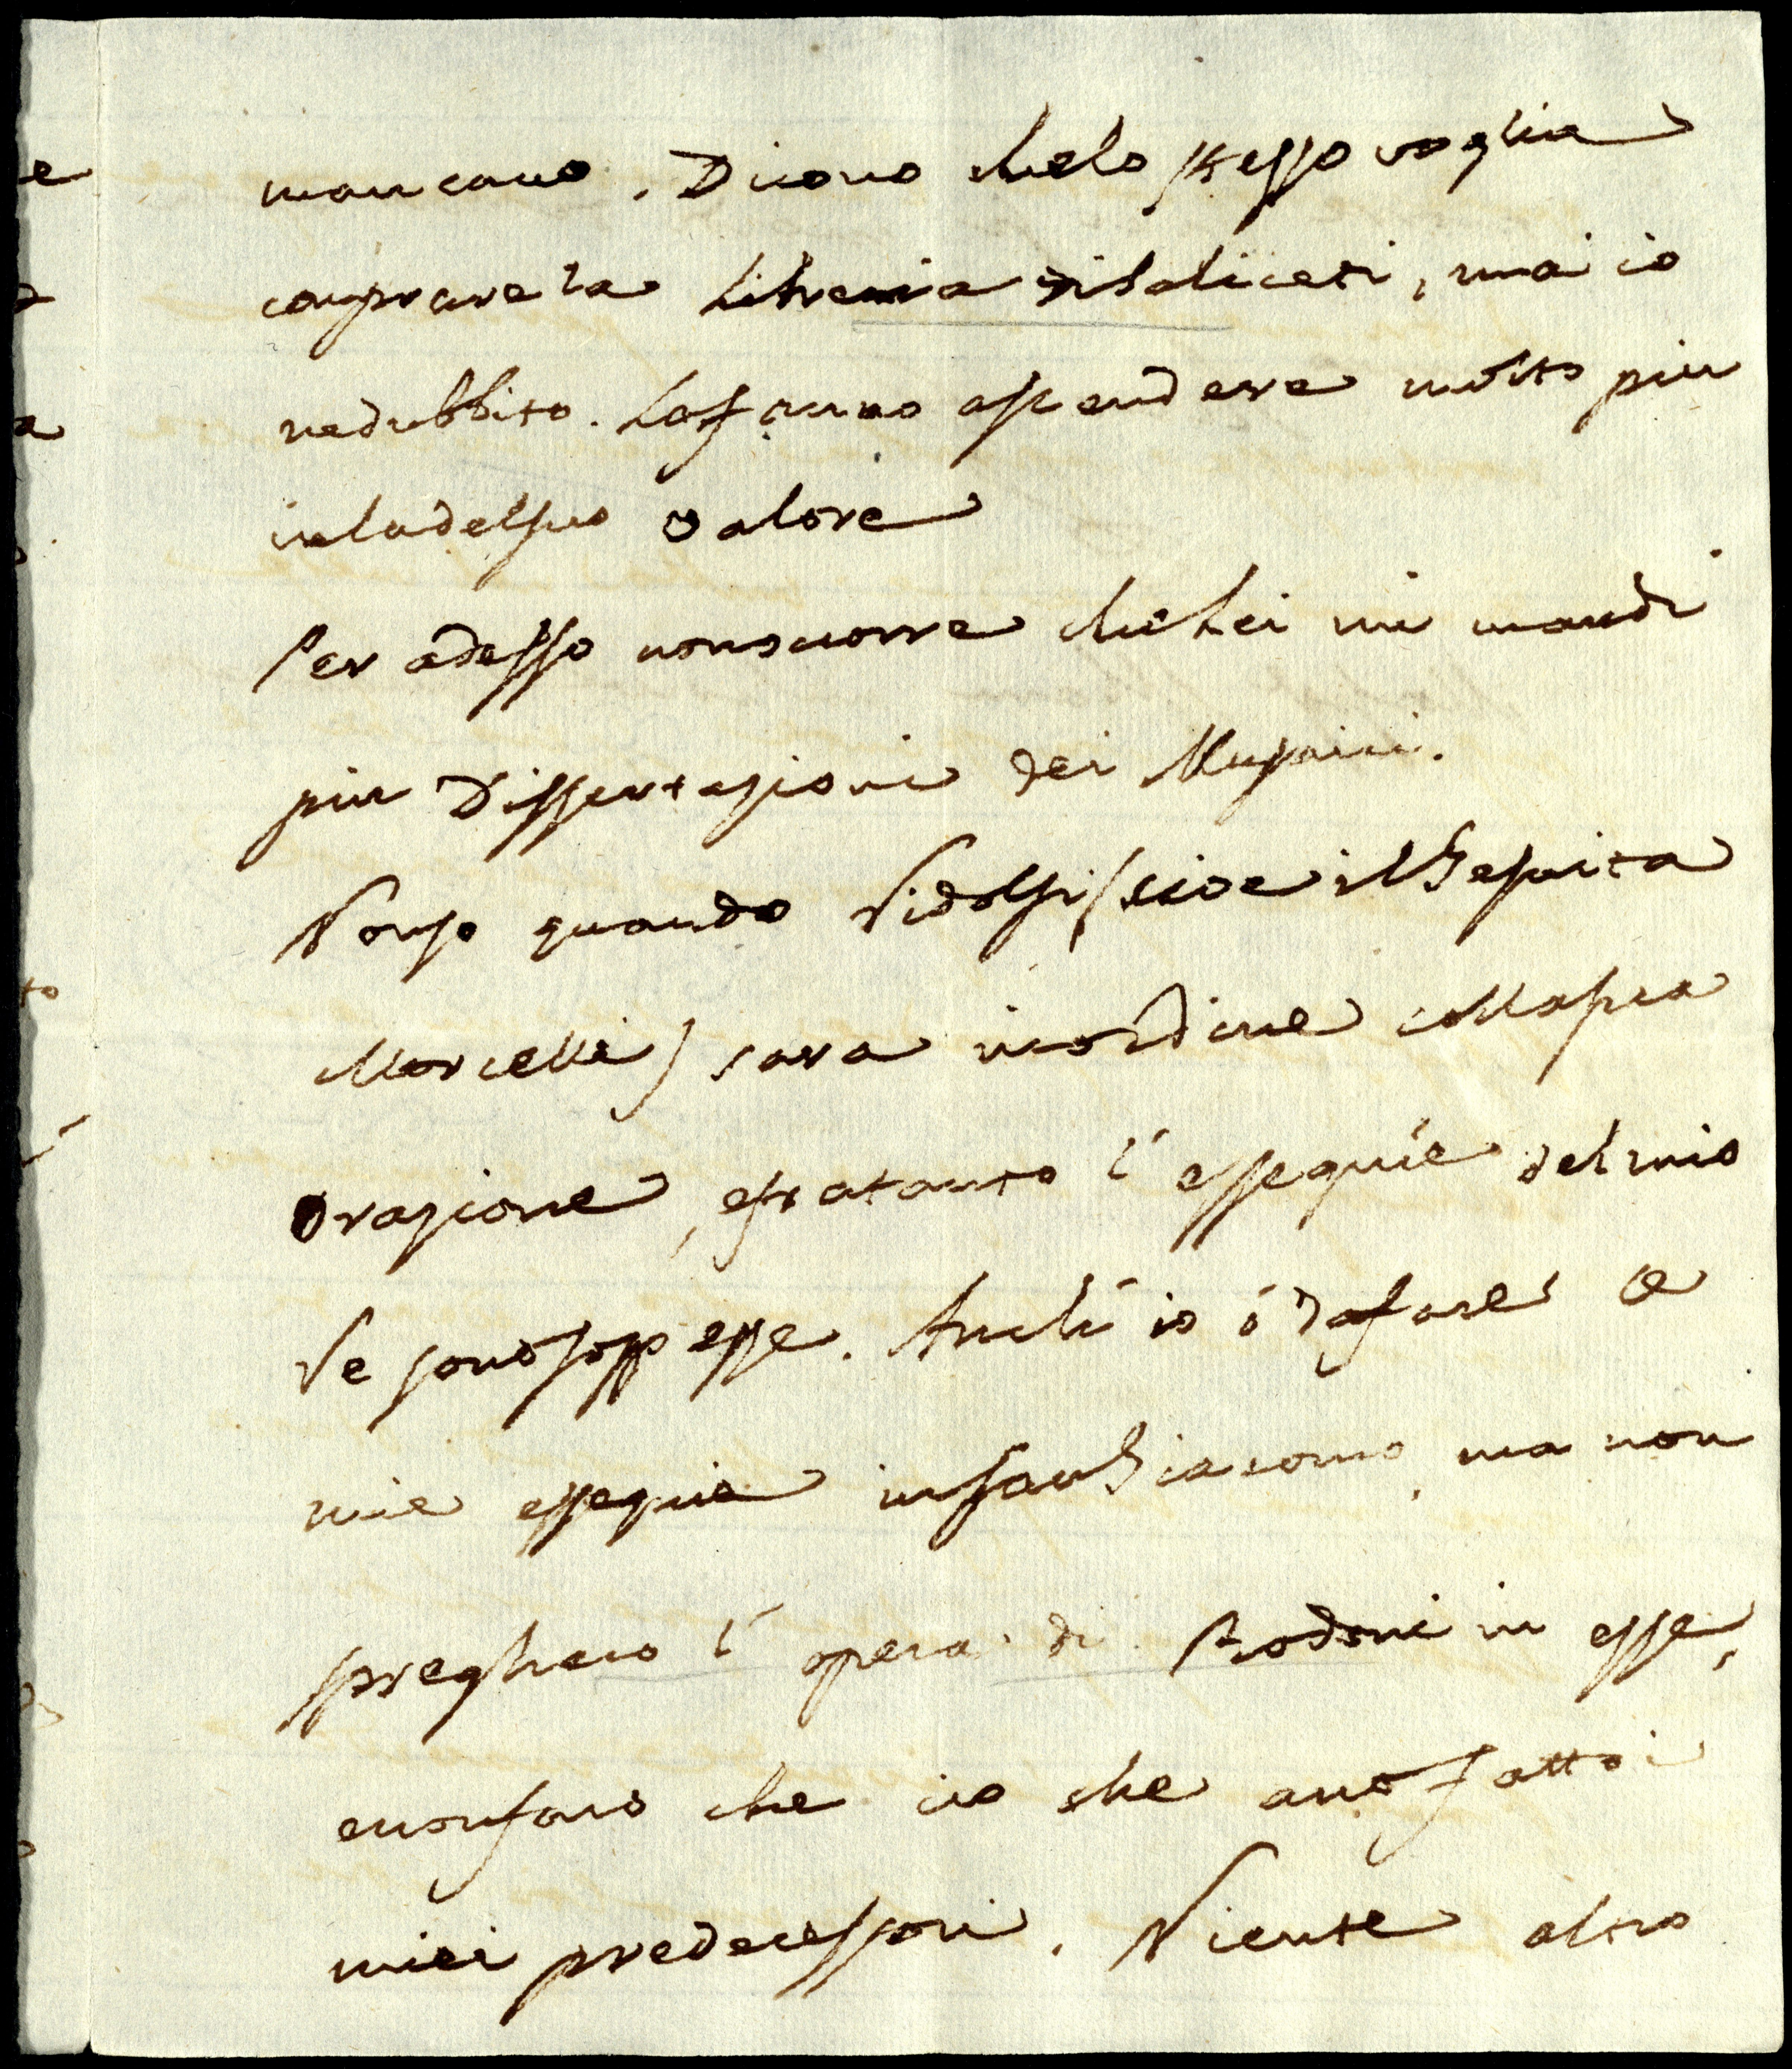 mancano. Dicono chelo stesso voglia
comprarela Libreria disaliceti, ma io
nedubbito. Lafanno ascendere molto piu
inladelsuo valore
Per adesso nonocorre cheLei mi mandi
piu Dissertazioni dei
Nonso quando Vidolfi (cioe ilGesuita
Morcelli) sara inordine collasua
Orazione, efratanto l'essequie delmio
Re sonosoppesse. Anch'io ó dafare le
mie essequie insanGiacomo, ma non
spreghero l'opera di Bodoni in esse,
enonfaro che cio che anofatto i
miei predecessori. Niente altro